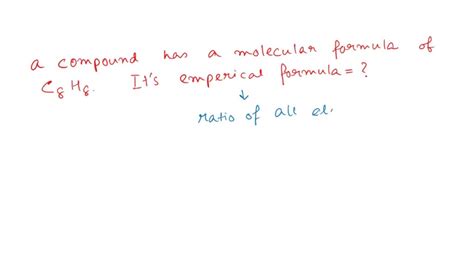 a compound has a molecular formula of
C₈H₈. It's emperical formula = ?
↓
ratio of all el.